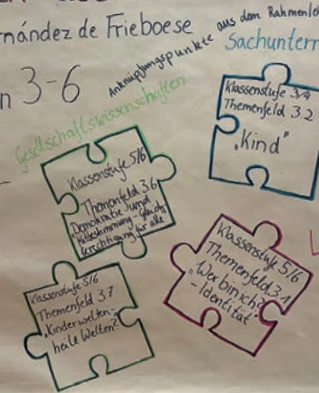 nández de Frieboese
n 3-6
Anknüpfungspunkte aus dem Rahmenle
Sachunterr
Gesellschaftswissenschaften
Klassenstufe 3/4
Themenfeld 3.2
„Kind"
Klassenstufe 5/6
Themenfeld 3.6
Demokratie und
Mitbestimmung - Gleich-
berechtigung für alle
Klassenstufe 5/6
Themenfeld 3.1
„Wer bin ich?
- Identität"
Klassenstufe 5/6
Themenfeld 3.7
„Kinderwelten -
heile Welten?"